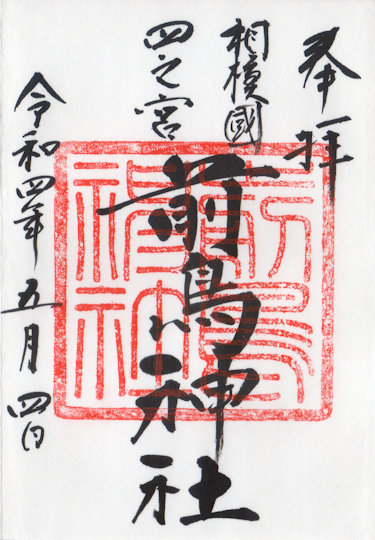 奉拝
相模國
四之宮
前鳥神社
令和四年五月四日